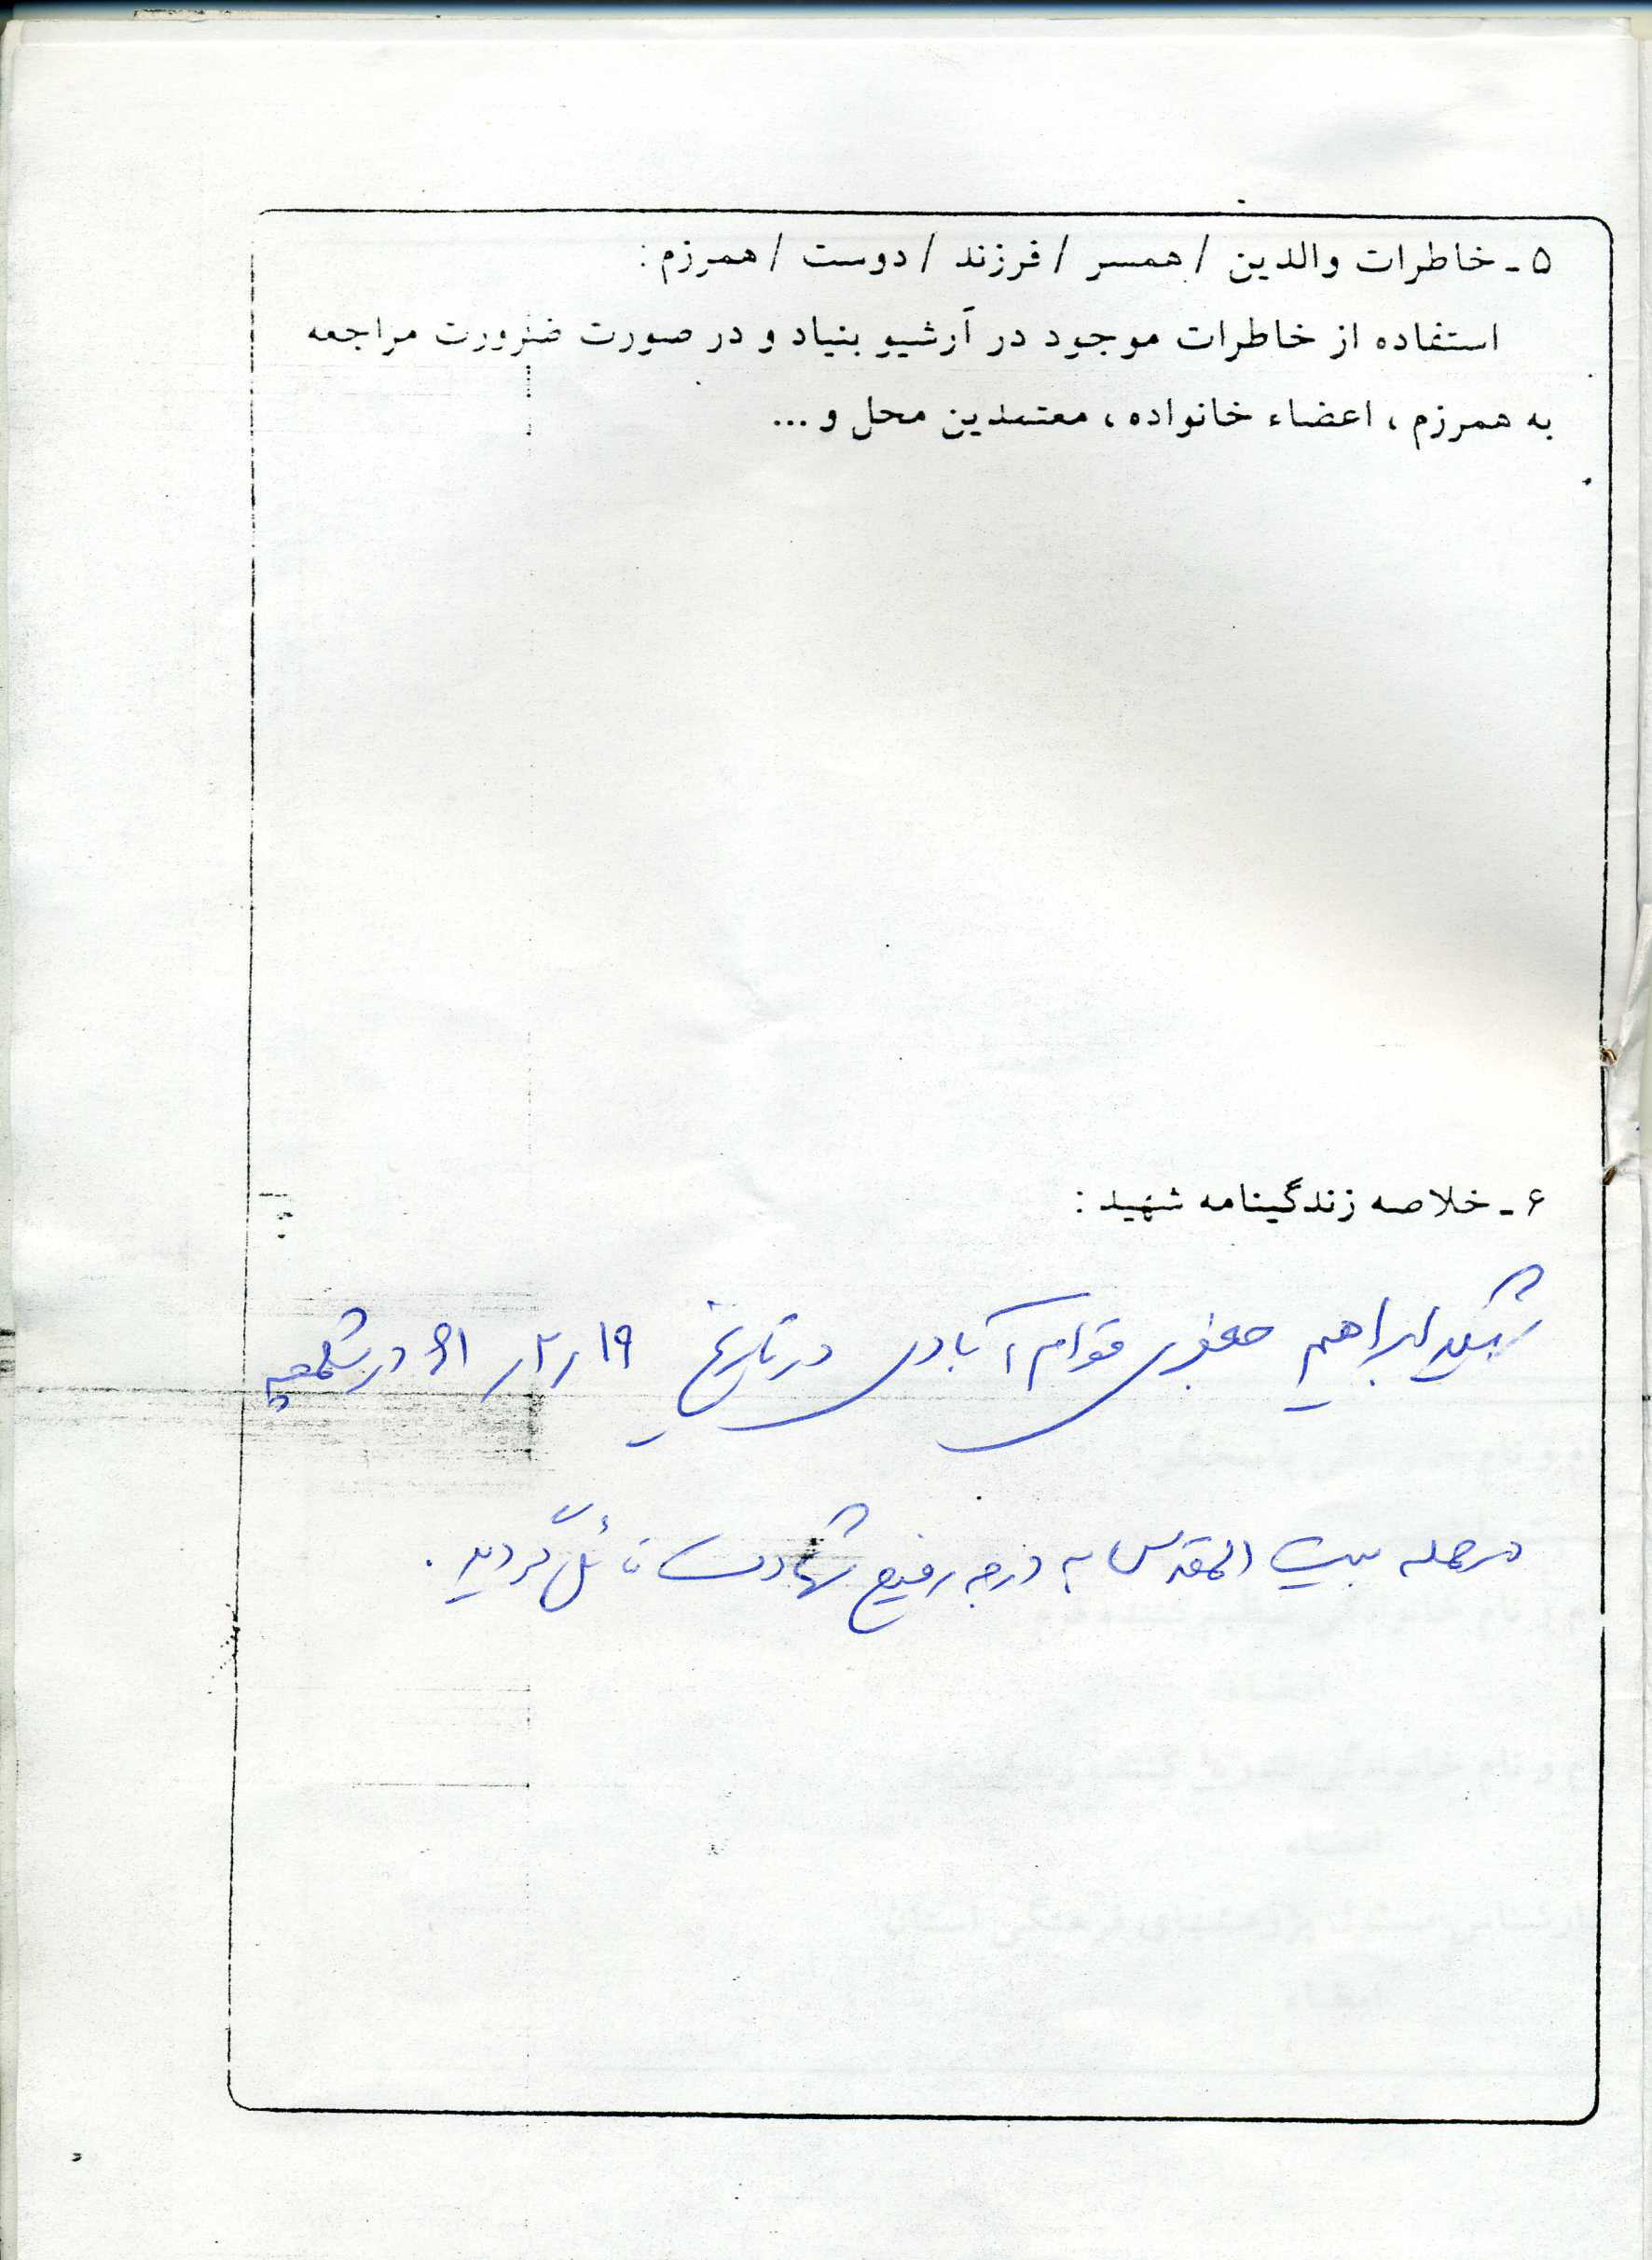 ۵ ـ خاطرات والدین / همسر / فرزند / دوست / همرزم :
استفاده از خاطرات موجود در آرشیو بنیاد و در صورت ضرورت مراجعه
به همرزم ، اعضاء خانواده ، معتمدین محل و ...
۶ ـ خلاصه زندگینامه شهید :
شهید ابراهیم جعفری قوام آبادی در تاریخ ۱۹ ر ۲ ر ۶۱ در شلمچه
درحمله بیت المقدس به درجه رفیع شهادت نائل گردید .